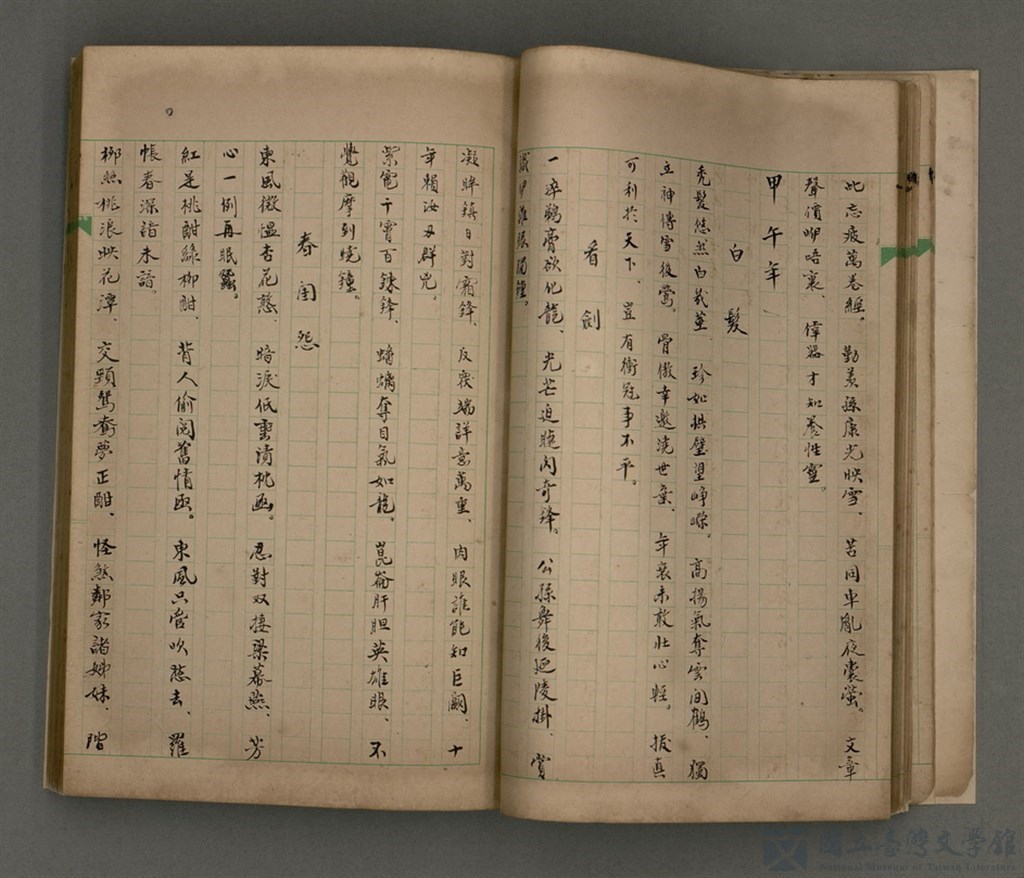 此忘疲萬卷經、勤羨孫康光映雪、苦同車胤夜囊螢。文章
聲價呷唔裏、偉器才知養性靈。
甲午年
白髮
禿髮悠然白幾莖、珍如拱璧望崢嶸。高揚氣奪雲間鶴、獨
立神傳雪後鶯。骨傲幸邀澆世棄、年衰未敢壯心輕。拔真
可利於天下、豈有衝冠事不平。
看劍
一淬鵜膏欲化龍、光芒迫睫閃奇鋒。公孫舞後延陵掛、賞
識甲誰眼獨鍾。
凝眸鎮日對霜鋒、反覆端詳意萬重、肉眼誰能知巨闕、十
年賴汝刃群兇。
紫電干霄百鍊鋒、熠熠奪目氣如龍。崑崙肝胆英雄眼、不
覺觀摩到曉鐘。
春閨怨
東風微慍杏花愁、暗淚低垂清枕函。忍對双棲梁幕燕、芳
心一例再眠蠶。
紅是桃酣綠柳酣、背人偷閱舊情函。東風只管吹愁去、羅
帳春深諳未諳。
柳煞桃浪映花潭、交頸鴛鴦夢正酣、怪煞鄰家諸姊妹、階
國立臺灣文學館
National Museum of Taiwan Literature